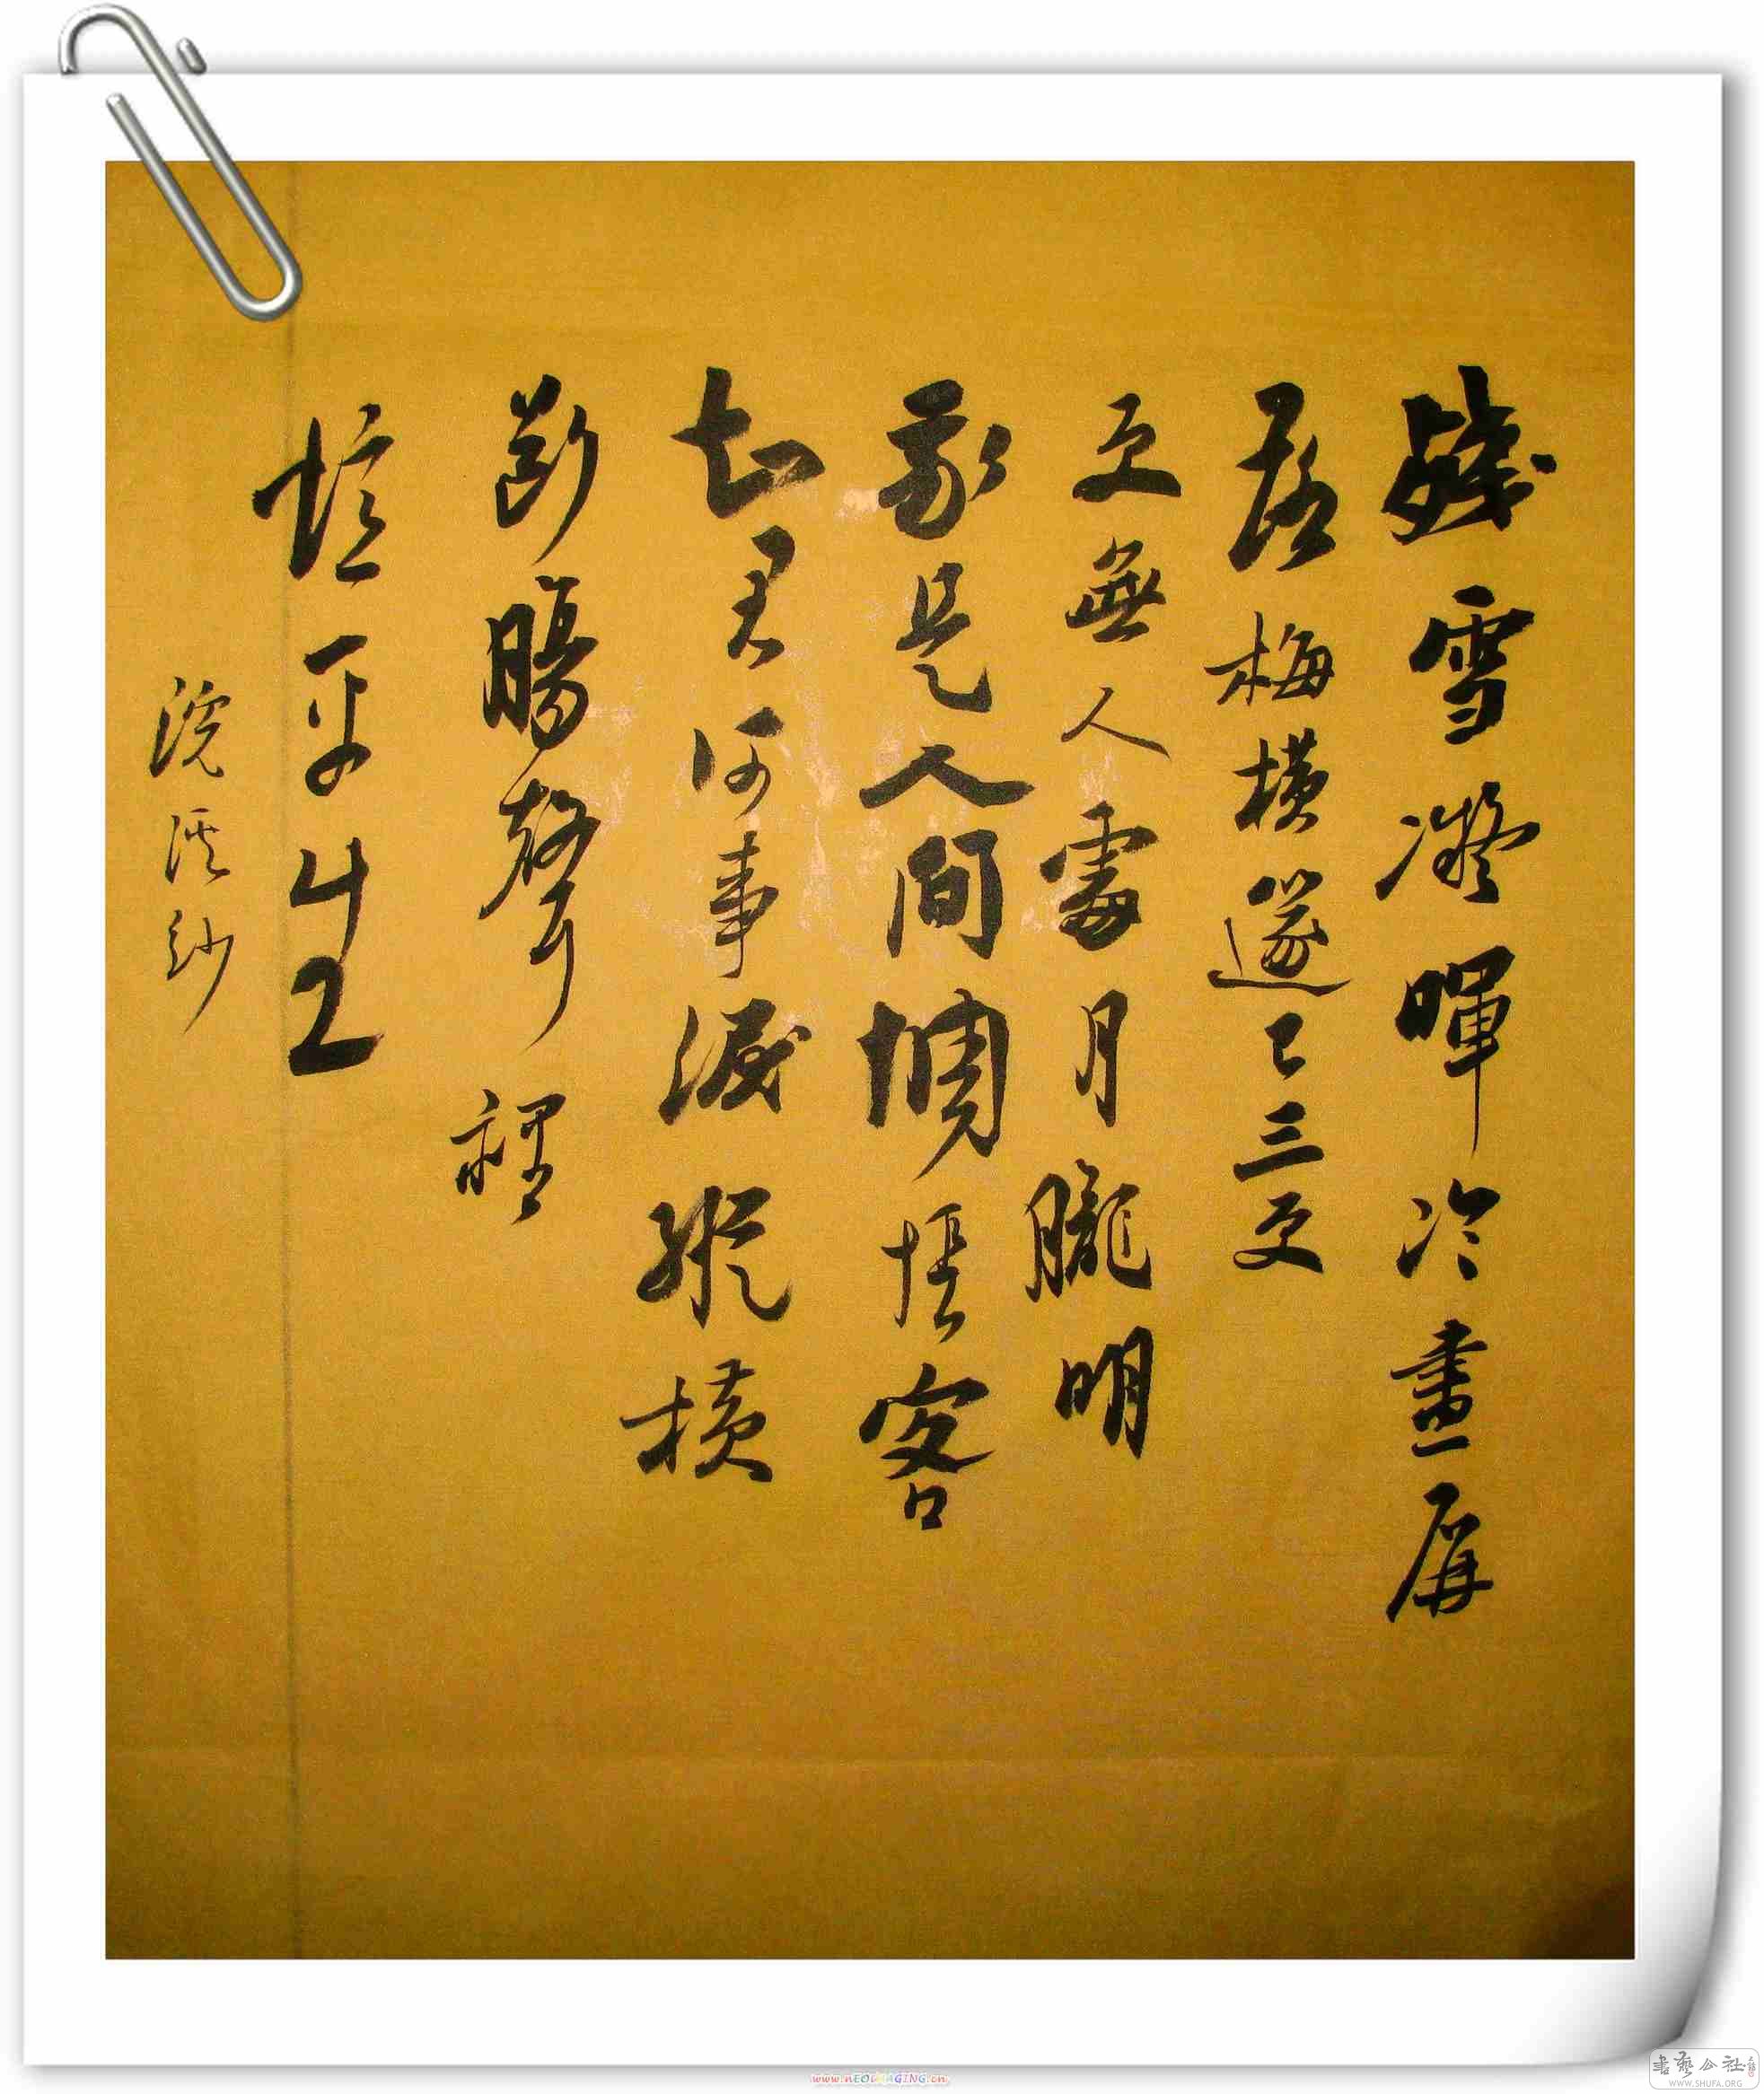 殘雪凝暉冷畫屏
落梅橫篴已三更
更無人處月朧明
我是人間惆悵客
知君何事淚縱橫
斷腸聲裡
憶平生
浣溪紗
www.NEOIMAGING.cn
書藝公社
WWW.SHUFA.ORG